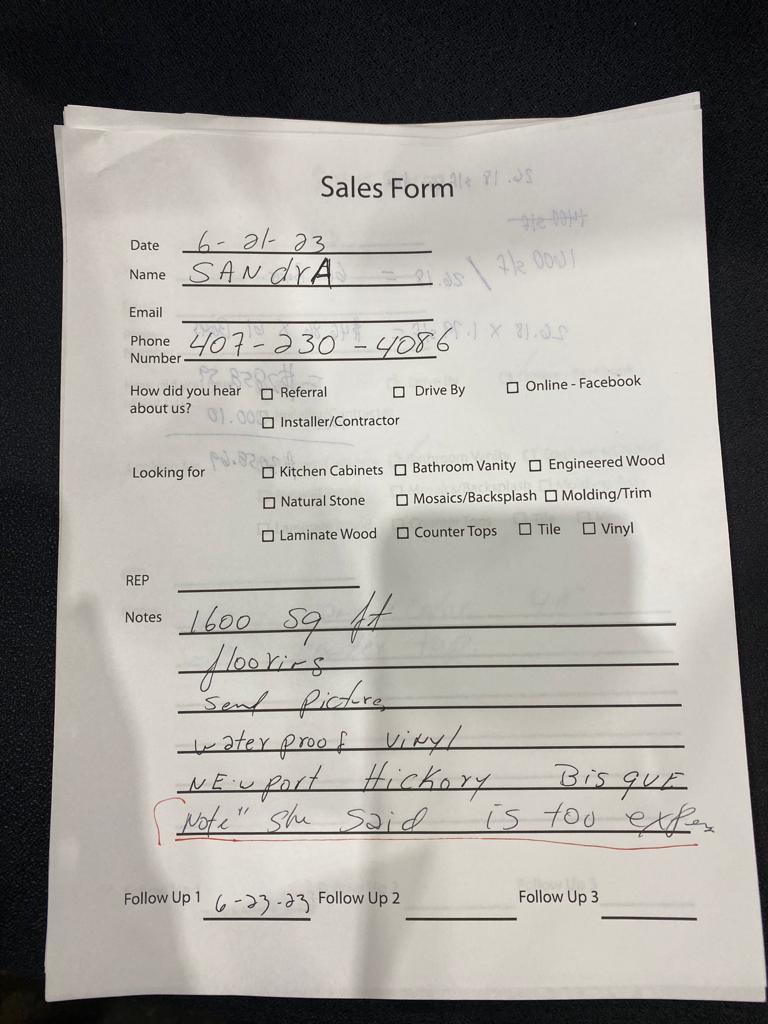 Sales Form
Date 6-21-23
Name SANdrA
Email
Phone Number 407-230-4086
How did you hear about us? ☐ Referral ☐ Drive By ☐ Online - Facebook
☐ Installer/Contractor
Looking for ☐ Kitchen Cabinets ☐ Bathroom Vanity ☐ Engineered Wood
☐ Natural Stone ☐ Mosaics/Backsplash ☐ Molding/Trim
☐ Laminate Wood ☐ Counter Tops ☐ Tile ☐ Vinyl
REP
Notes 1600 sq ft
flooring
send picture
waterproof vinyl
NEwport Hickory BisquE
Note" She said is too expen
Follow Up 1 6-23-23 Follow Up 2 Follow Up 3